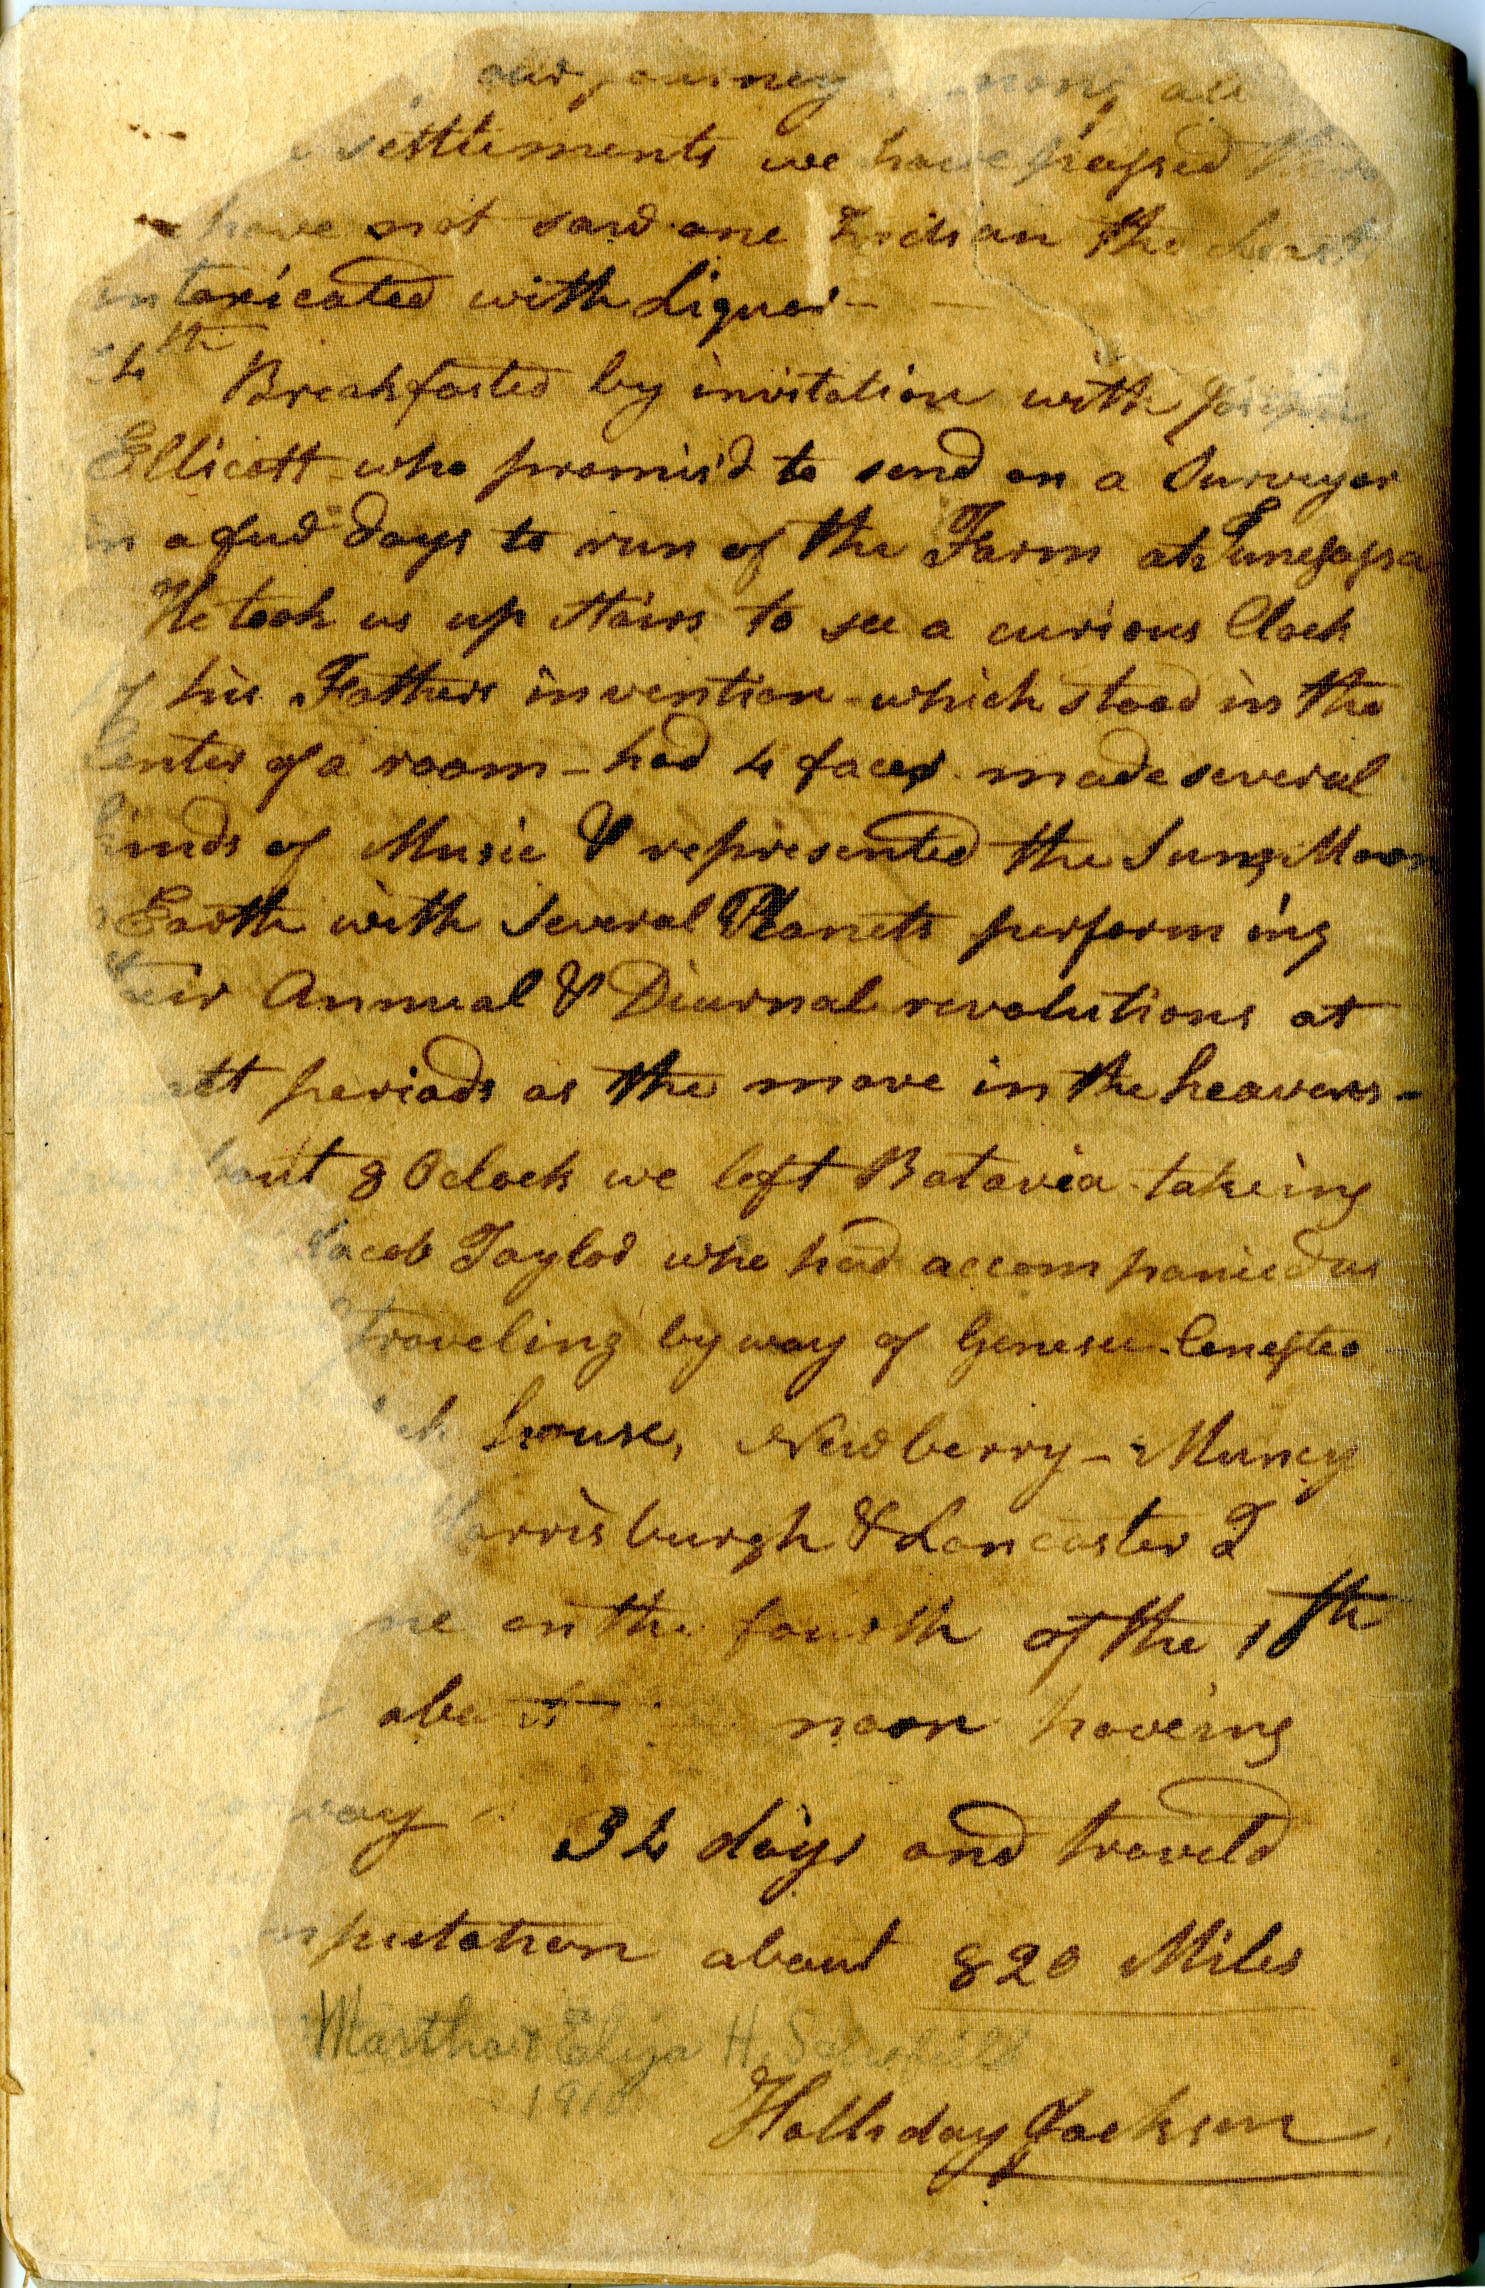 our journey among all
settlements we have passed thro
have not saw one Indian the Least
intoxicated with Liquor –
24th Breakfasted by invitation with Joseph
Ellicott who promis'd to send on a Surveyor
in a fud days to run of the Farm at Tunesassa
He took us up stairs to see a curious Clock
of his Fathers invention which stood in the
Center of a room – had 4 faces made several
kinds of Music & represented the Sun, Moon
Earth with several Planets performing
their Annual & Diurnal revolutions at
periods as the move in the heavens –
bout 8 Oclock we left Batavia takeing
Jacob Taylor who had accompanied us
Traveling by way of Genesee
house, Newberry – Muncy
Harrisburgh & Lancaster I
ne on the fourth of the 10th
about noon haveing
way 34 days and traveld
mputation about 820 Miles
Martha & Eliza H. Schofield
1910
Halliday Jackson